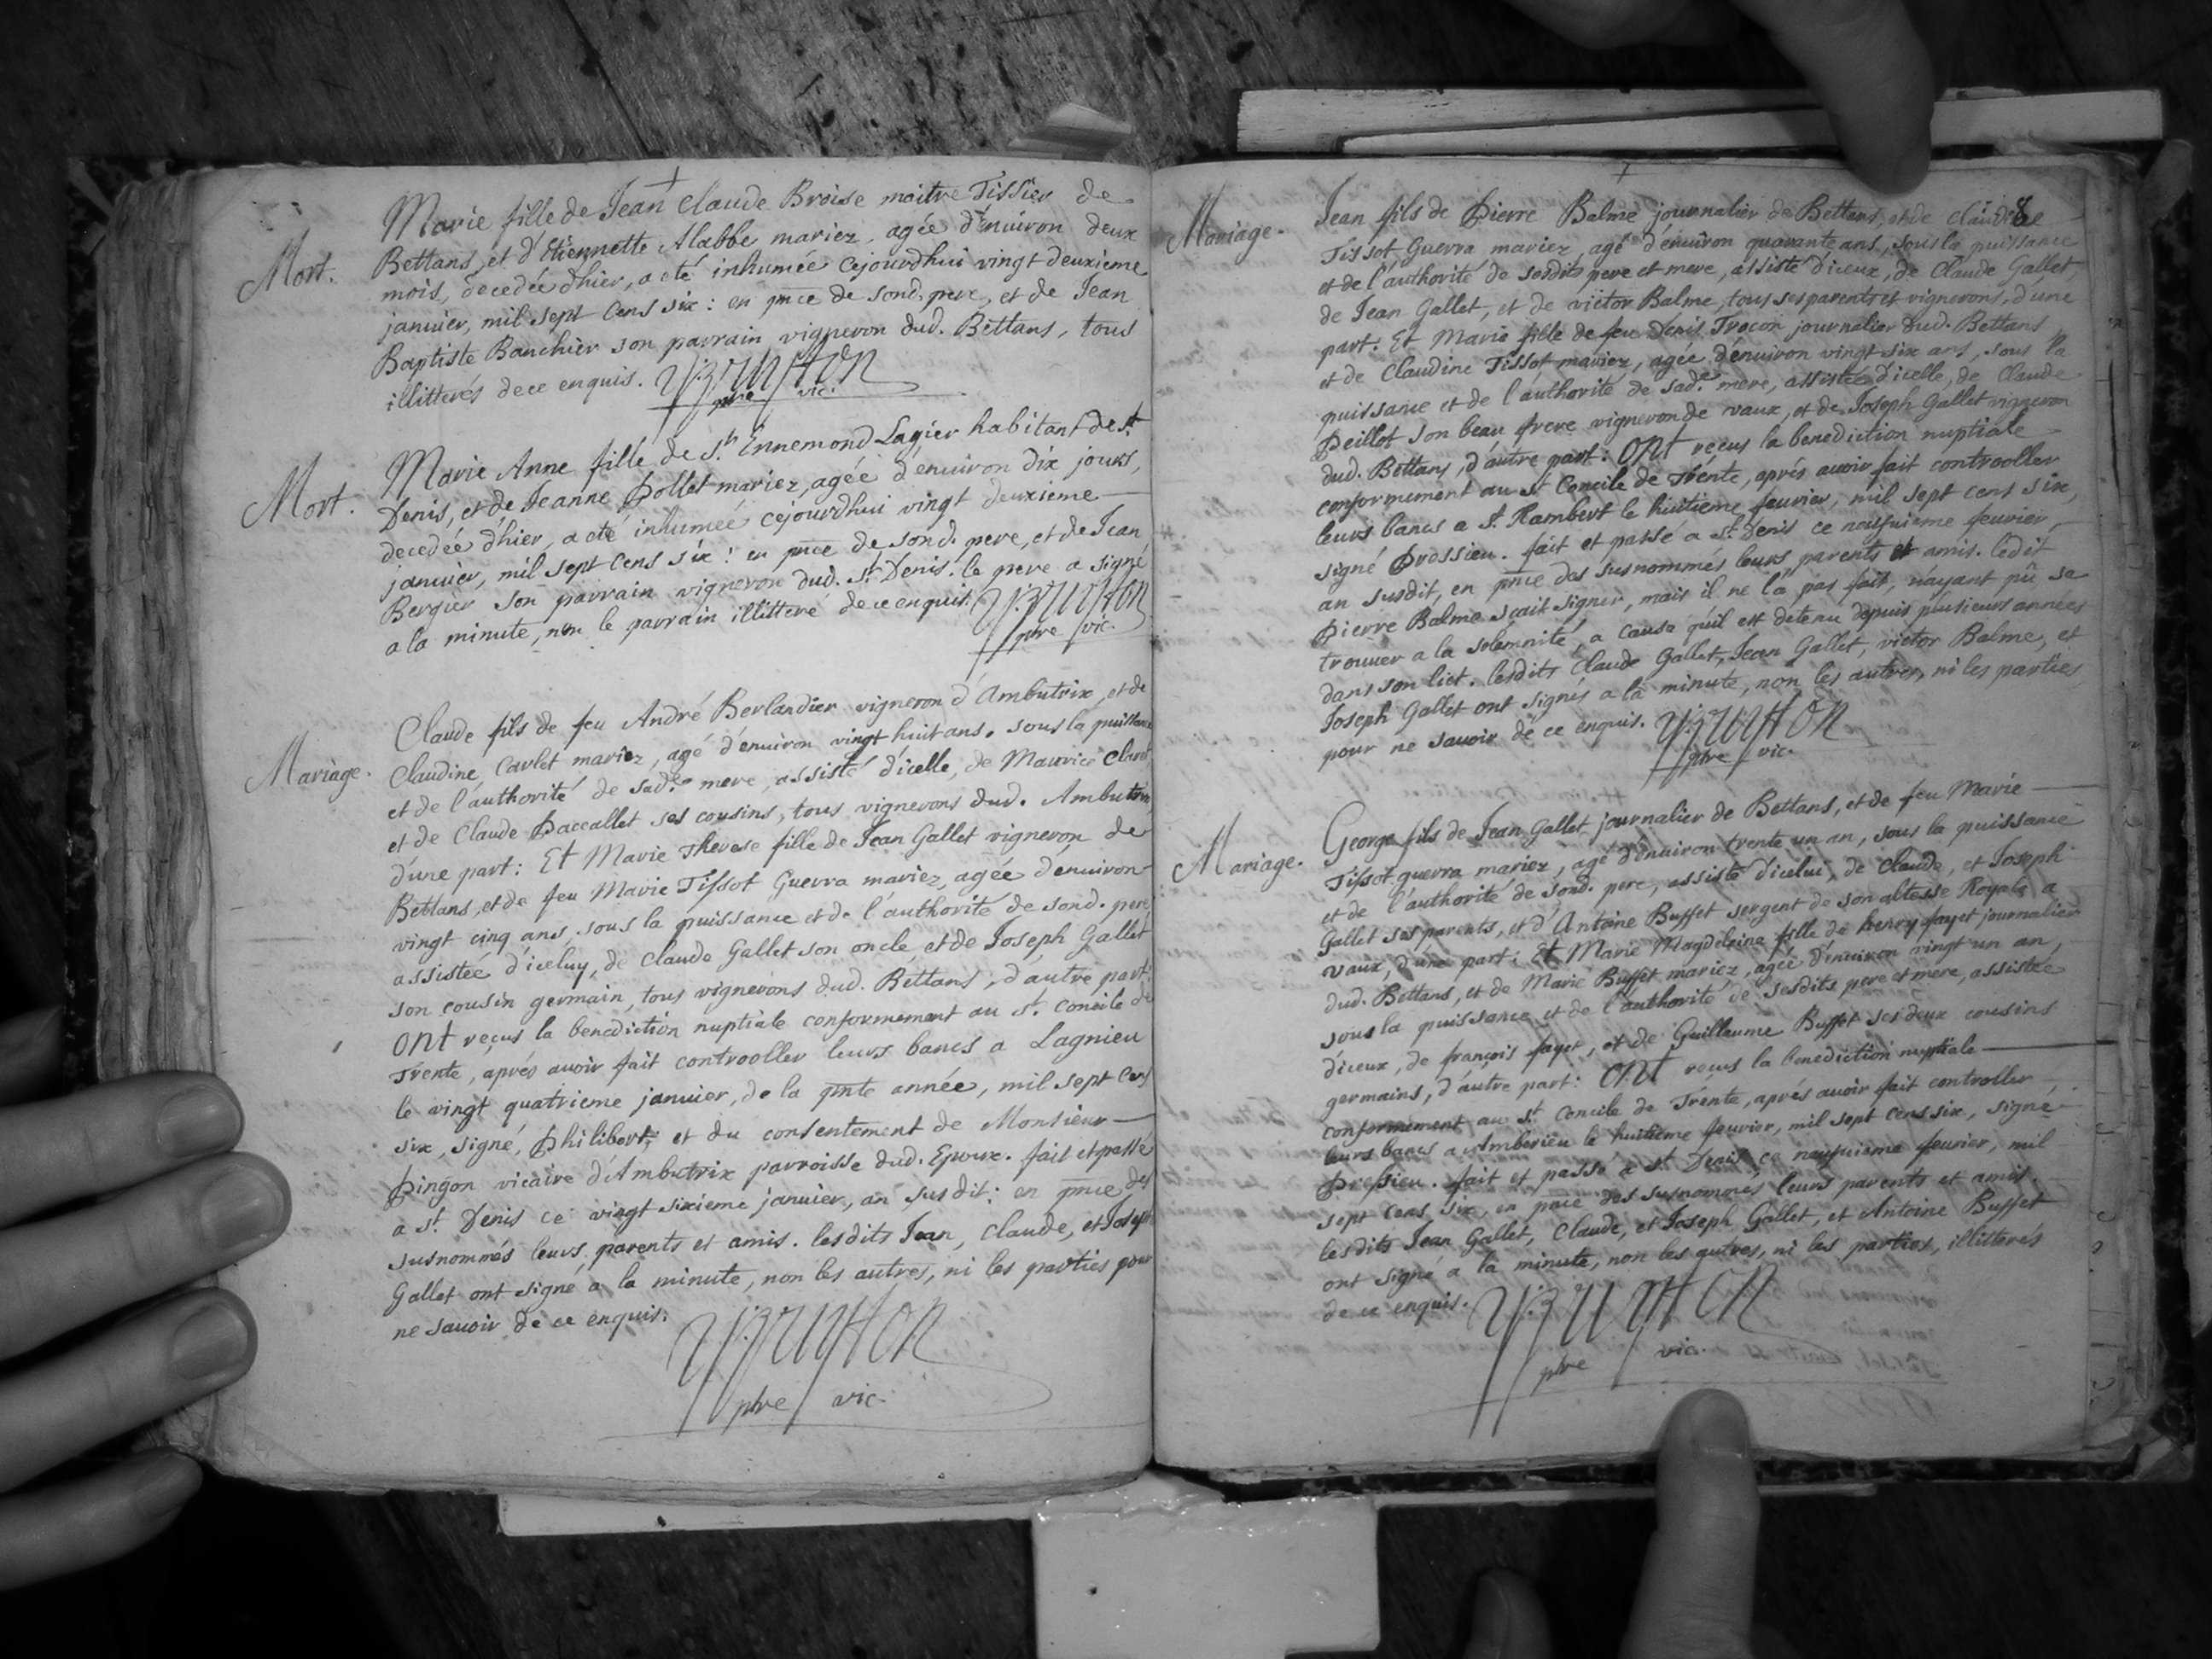 Mort.
Marie fille de Jean Claude Broise maitre Tissier de
Bettans, et d'Etiennette Alabbe mariez, agée d'énuiron deux
mois, decedée d'hier, a eté inhumée cejourdhui vingt deuxieme
januier, mil sept cens six : en pnce de sond. pere, et de Jean
Baptiste Bauchier son parrain vigneron dud. Bettans, tous
illitterés de ce enquis.
pbre vic.
Mort.
Marie Anne fille de Sr. Ennemond Lagier habitant de St.
Denis, et de Jeanne Pollet mariez, agée d'énuiron dix jours,
decedée d'hier, a eté inhumeé cejourdhui vingt deuxieme
januier, mil sept cens six : en pnce de sond. pere, et de Jean
Bergier son parrain vigneron dud. St. Denis. le pere a signé
a la minute, non le parrain illitteré de ce enquis.
pbre vic.
Mariage.
Claude fils de feu André Berlandier vigneron d'Ambutrix, et de
Claudine Carlet mariez, agé d'énuiron vingt huit ans, sous la puissance
et de l'authorité de sade. mere, assisté d'icelle, de Maurice
et de Claude Paccallet ses cousins, tous vignerons dud. Ambutrix
d'une part : Et Marie Therese fille de Jean Gallet vigneron de
Bettans, et de feu Marie Tissot Guerra mariez, agée d'énuiron
vingt cinq ans, sous la puissance et de l'authorité de sond. pere,
assistée d'iceluy, de Claude Gallet son oncle, et de Joseph Gallet
son cousin germain, tous vignerons dud. Bettans, d'autre part :
ont reçus la benediction nuptiale conformement au St. Concile de
Trente, aprés auoir fait controoller leurs bancs a Lagnieu
le vingt quatrieme januier, de la pnte année, mil sept cens
six, signé, Philibert, et du consentement de Monsieur
Pingon vicaire d'Ambutrix parroisse dud. Epoux. fait et passé
a St. Denis ce vingt sixieme januier, an susdit : en pnce des
susnommés leurs parents et amis. lesdits Jean, Claude, et Joseph
Gallet ont signé a la minute, non les autres, ni les parties pour
ne sauoir de ce enquis.
pbre vic.
8
Mariage.
Jean fils de Pierre Balme journalier de Bettans, et de Claudine
Tissot Guerra mariez, agé d'énuiron quarante ans, sous la puissance
et de l'authorité de sesdits pere et mere, assisté d'iceux, de Claude Gallet,
de Jean Gallet, et de victor Balme, tous ses parents et vignerons, d'une
part. Et Marie fille de feu Denis Trocon journalier dud. Bettans
et de Claudine Tissot mariez, agée d'énuiron vingt six ans, sous la
puissance et de l'authorité de sade. mere, assistée d'icelle, de Claude
Peillot son beau frere vigneron de vaux, et de Joseph Gallet vigneron
dud. Bettans, d'autre part : Ont reçus la benediction nuptiale
conformement au St. Concile de Trente, aprés auoir fait controoller
leurs bancs a St. Rambert le huitieme feurier, mil sept cens six,
signé Prossieu. fait et passé a St. Denis ce neufuieme feurier,
an susdit, en pnce des susnommés leurs parents et amis. ledit
Pierre Balme sçait signer, mais il ne l'a pas fait, n'ayant pû se
trouuer a la solemnité, a cause qu'il est detenu depuis plusieurs années
dans son lict. lesdits Claude Gallet, Jean Gallet, victor Balme, et
Joseph Gallet ont signés a la minute, non les autres, ni les parties
pour ne sauoir de ce enquis.
pbre vic.
Mariage.
George fils de Jean Gallet journalier de Bettans, et de feu Marie
Tissot guerra mariez, agé d'énuiron trente un an, sous la puissance
et de l'authorité de sond. pere, assisté d'icelui, de Claude, et Joseph
Gallet ses parents, et d'Antoine Buffet sergent de son altesse Royale a
vaux, d'une part : Et Marie Magdeleine fille de henry fayet journalier
dud. Bettans, et de Marie Buffet mariez, agée d'énuiron vingt un an,
sous la puissance et de l'authorité de sesdits pere et mere, assistée
d'iceux, de françois fayet, et de Guillaume Buffet ses deux cousins
germains, d'autre part : Ont reçus la benediction nuptiale
conformement au St. Concile de Trente, aprés auoir fait controller
leurs bancs a Amberieu le huitieme feurier, mil sept cens six, signé
Pressieu. fait et passé a St. Denis ce neufuieme feurier, mil
sept cens six, en pnce des susnommés leurs parents et amis.
lesdits Jean Gallet, Claude, et Joseph Gallet, et Antoine Buffet
ont signé a la minute, non les autres, ni les parties, illitterés
de ce enquis.
pbre vic.